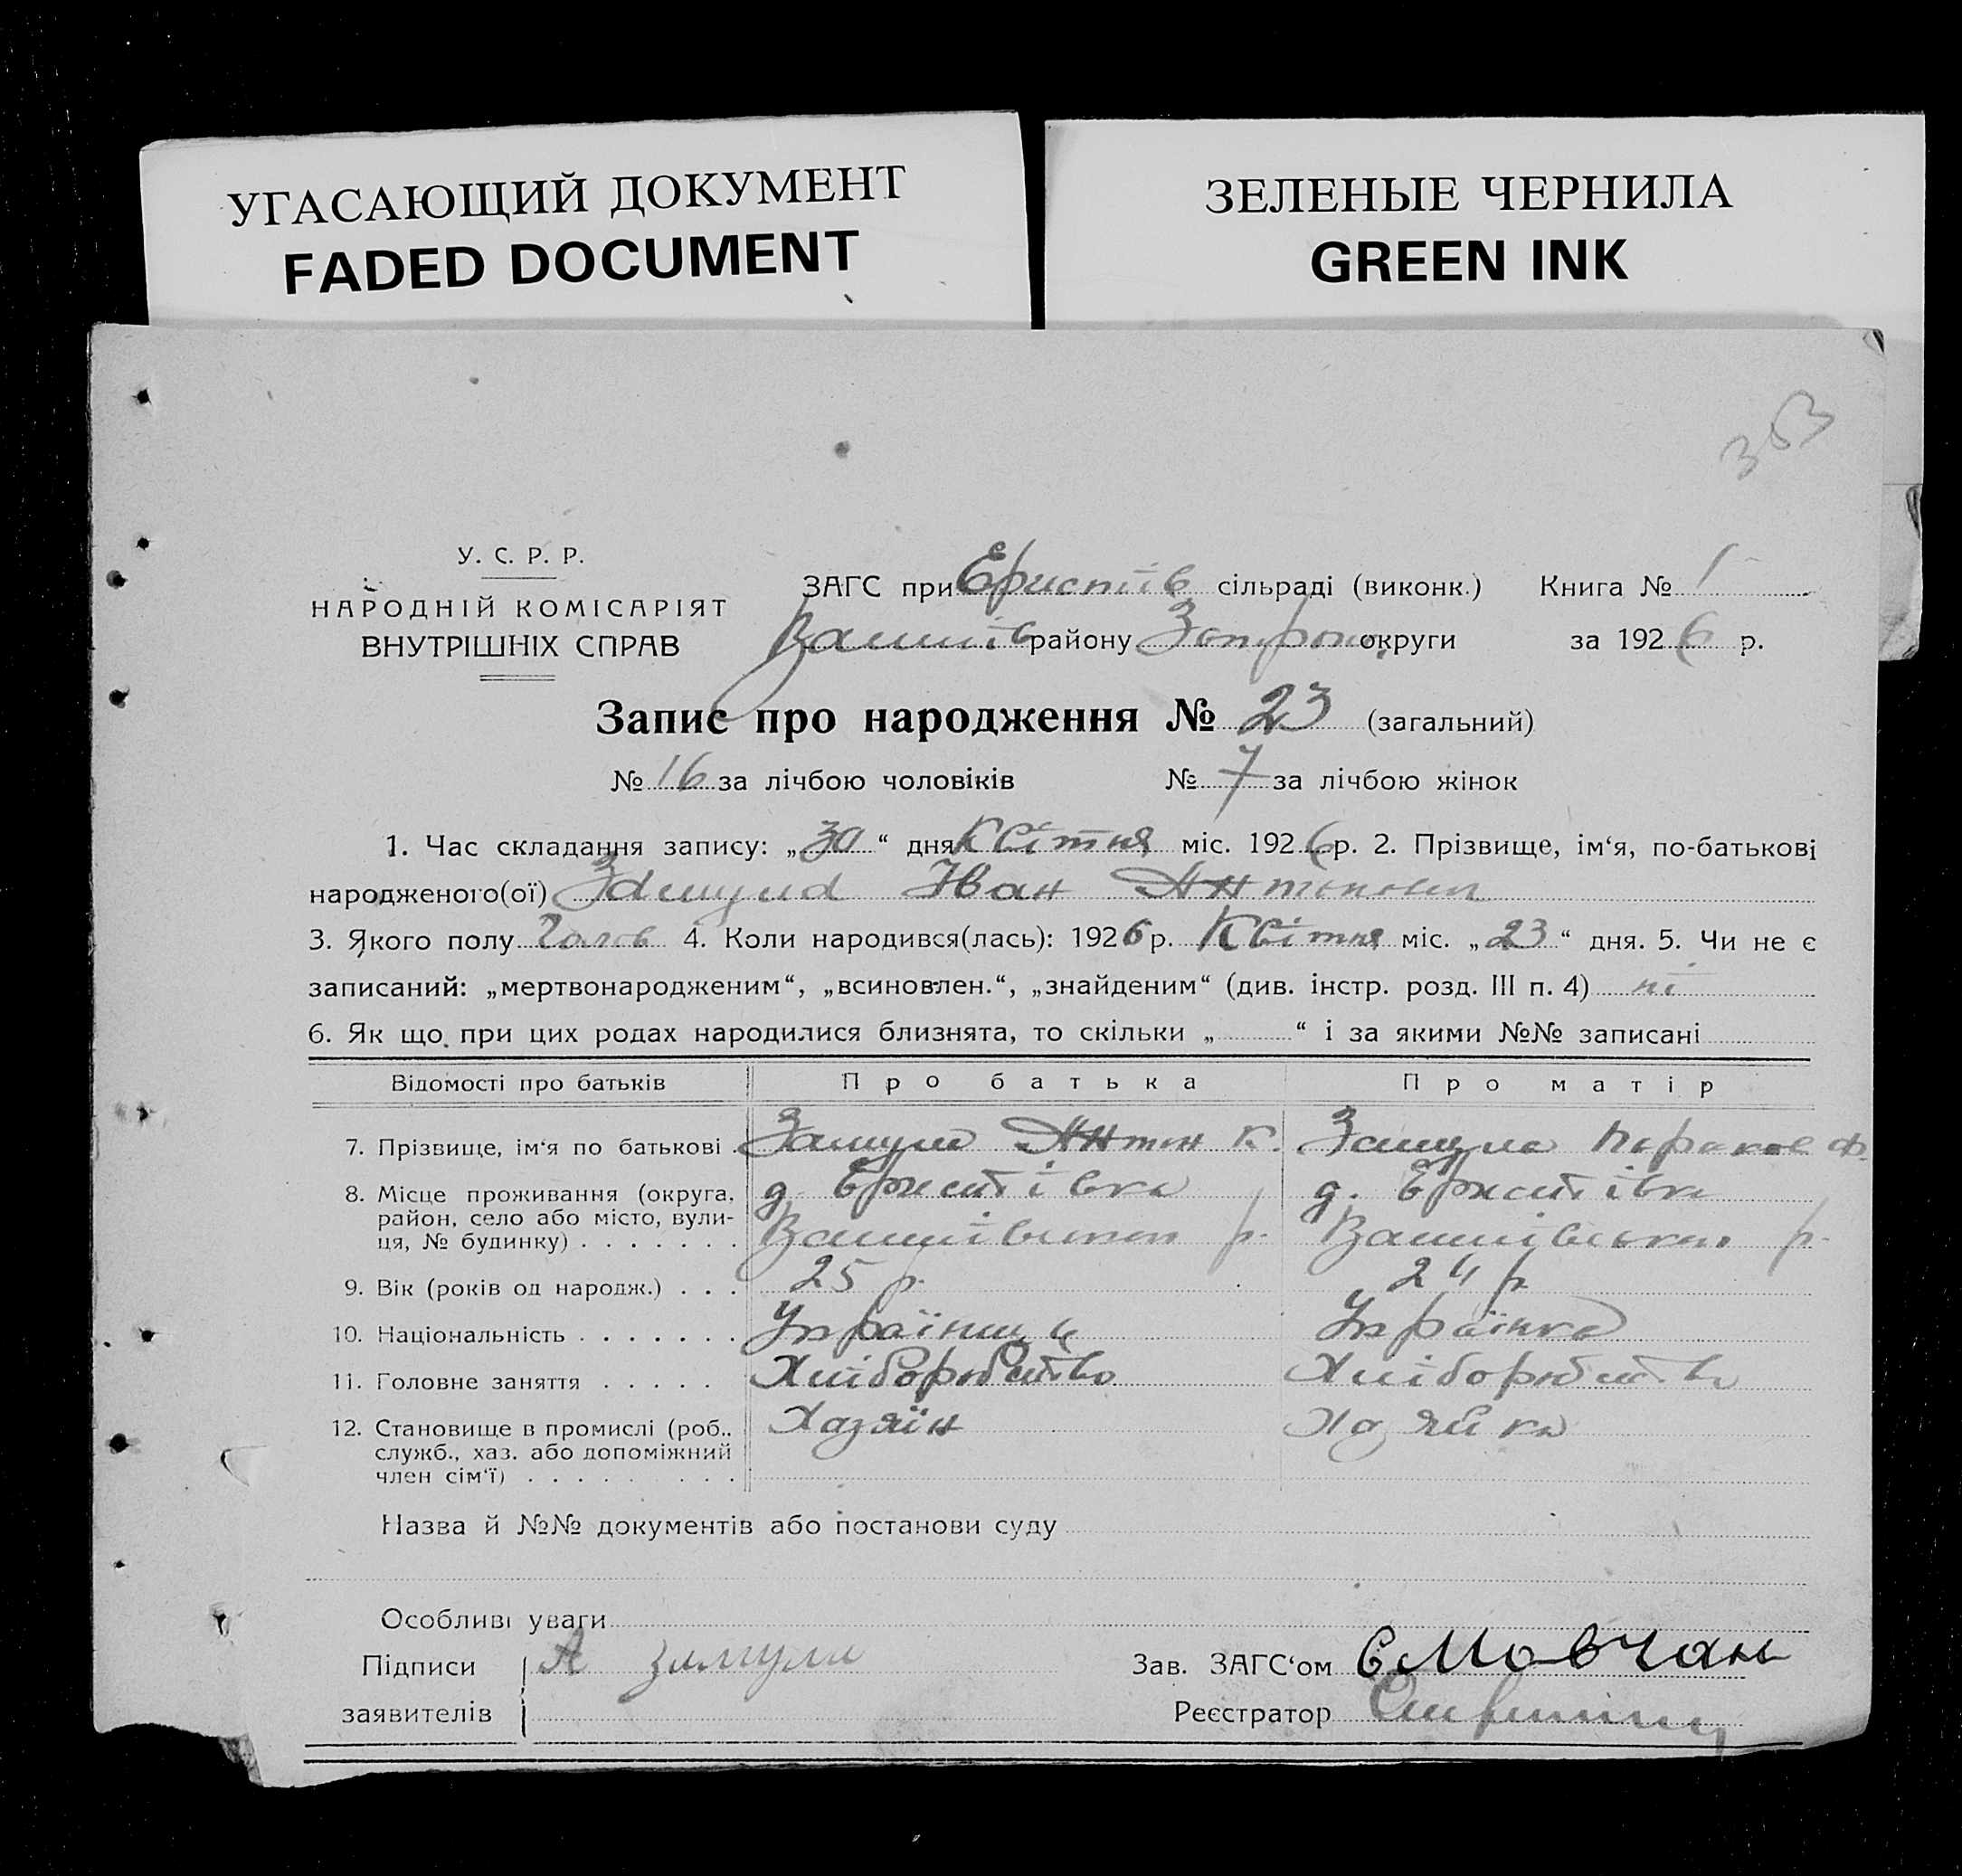 УГАСАЮЩИЙ ДОКУМЕНТ
FADED DOCUMENT
ЗЕЛЕНЫЕ ЧЕРНИЛА
GREEN INK
353
У. С. Р. Р.
НАРОДНІЙ КОМІСАРІЯТ
ВНУТРІШНІХ СПРАВ
ЗАГС при Еристів сільраді (виконк.) Книга № 1
району округи за 1926 р.
Запис про народження № 23 (загальний)
№ 16 за лічбою чоловіків № 7 за лічбою жінок
1. Час складання запису: „30“ дня Квітня міс. 1926 р. 2. Прізвище, ім‘я, по-батькові
народженого(ої) Замула Іван Антонович
3. Якого полу Чолов 4. Коли народився(лась): 1926 р. Квітня міс. „23“ дня. 5. Чи не є
записаний: „мертвонародженим“, „всиновлен.“, „знайденим“ (див. інстр. розд. III п. 4) ні
6. Як що при цих родах народилися близнята, то скільки „ “ і за якими №№ записані
Відомості про батьків Про батька Про матір
7. Прізвище, ім‘я по батькові Замула Антон К. Замула Ф.
8. Місце проживання (округа, район, село або місто, вули-ця, № будинку) д. Еристівка р. д. Еристівка р.
9. Вік (років од народж.) 25 р. 24 р
10. Національність Українець Українка
11. Головне заняття Хліборобство Хліборобство
12. Становище в промислі (роб., служб., хаз. або допоміжний член сім‘ї) Хазяїн Хазяйка
Назва й №№ документів або постанови суду
Особливі уваги
Підписи А Замула Зав. ЗАГС‘ом Є Мовчан
заявителів Реєстратор